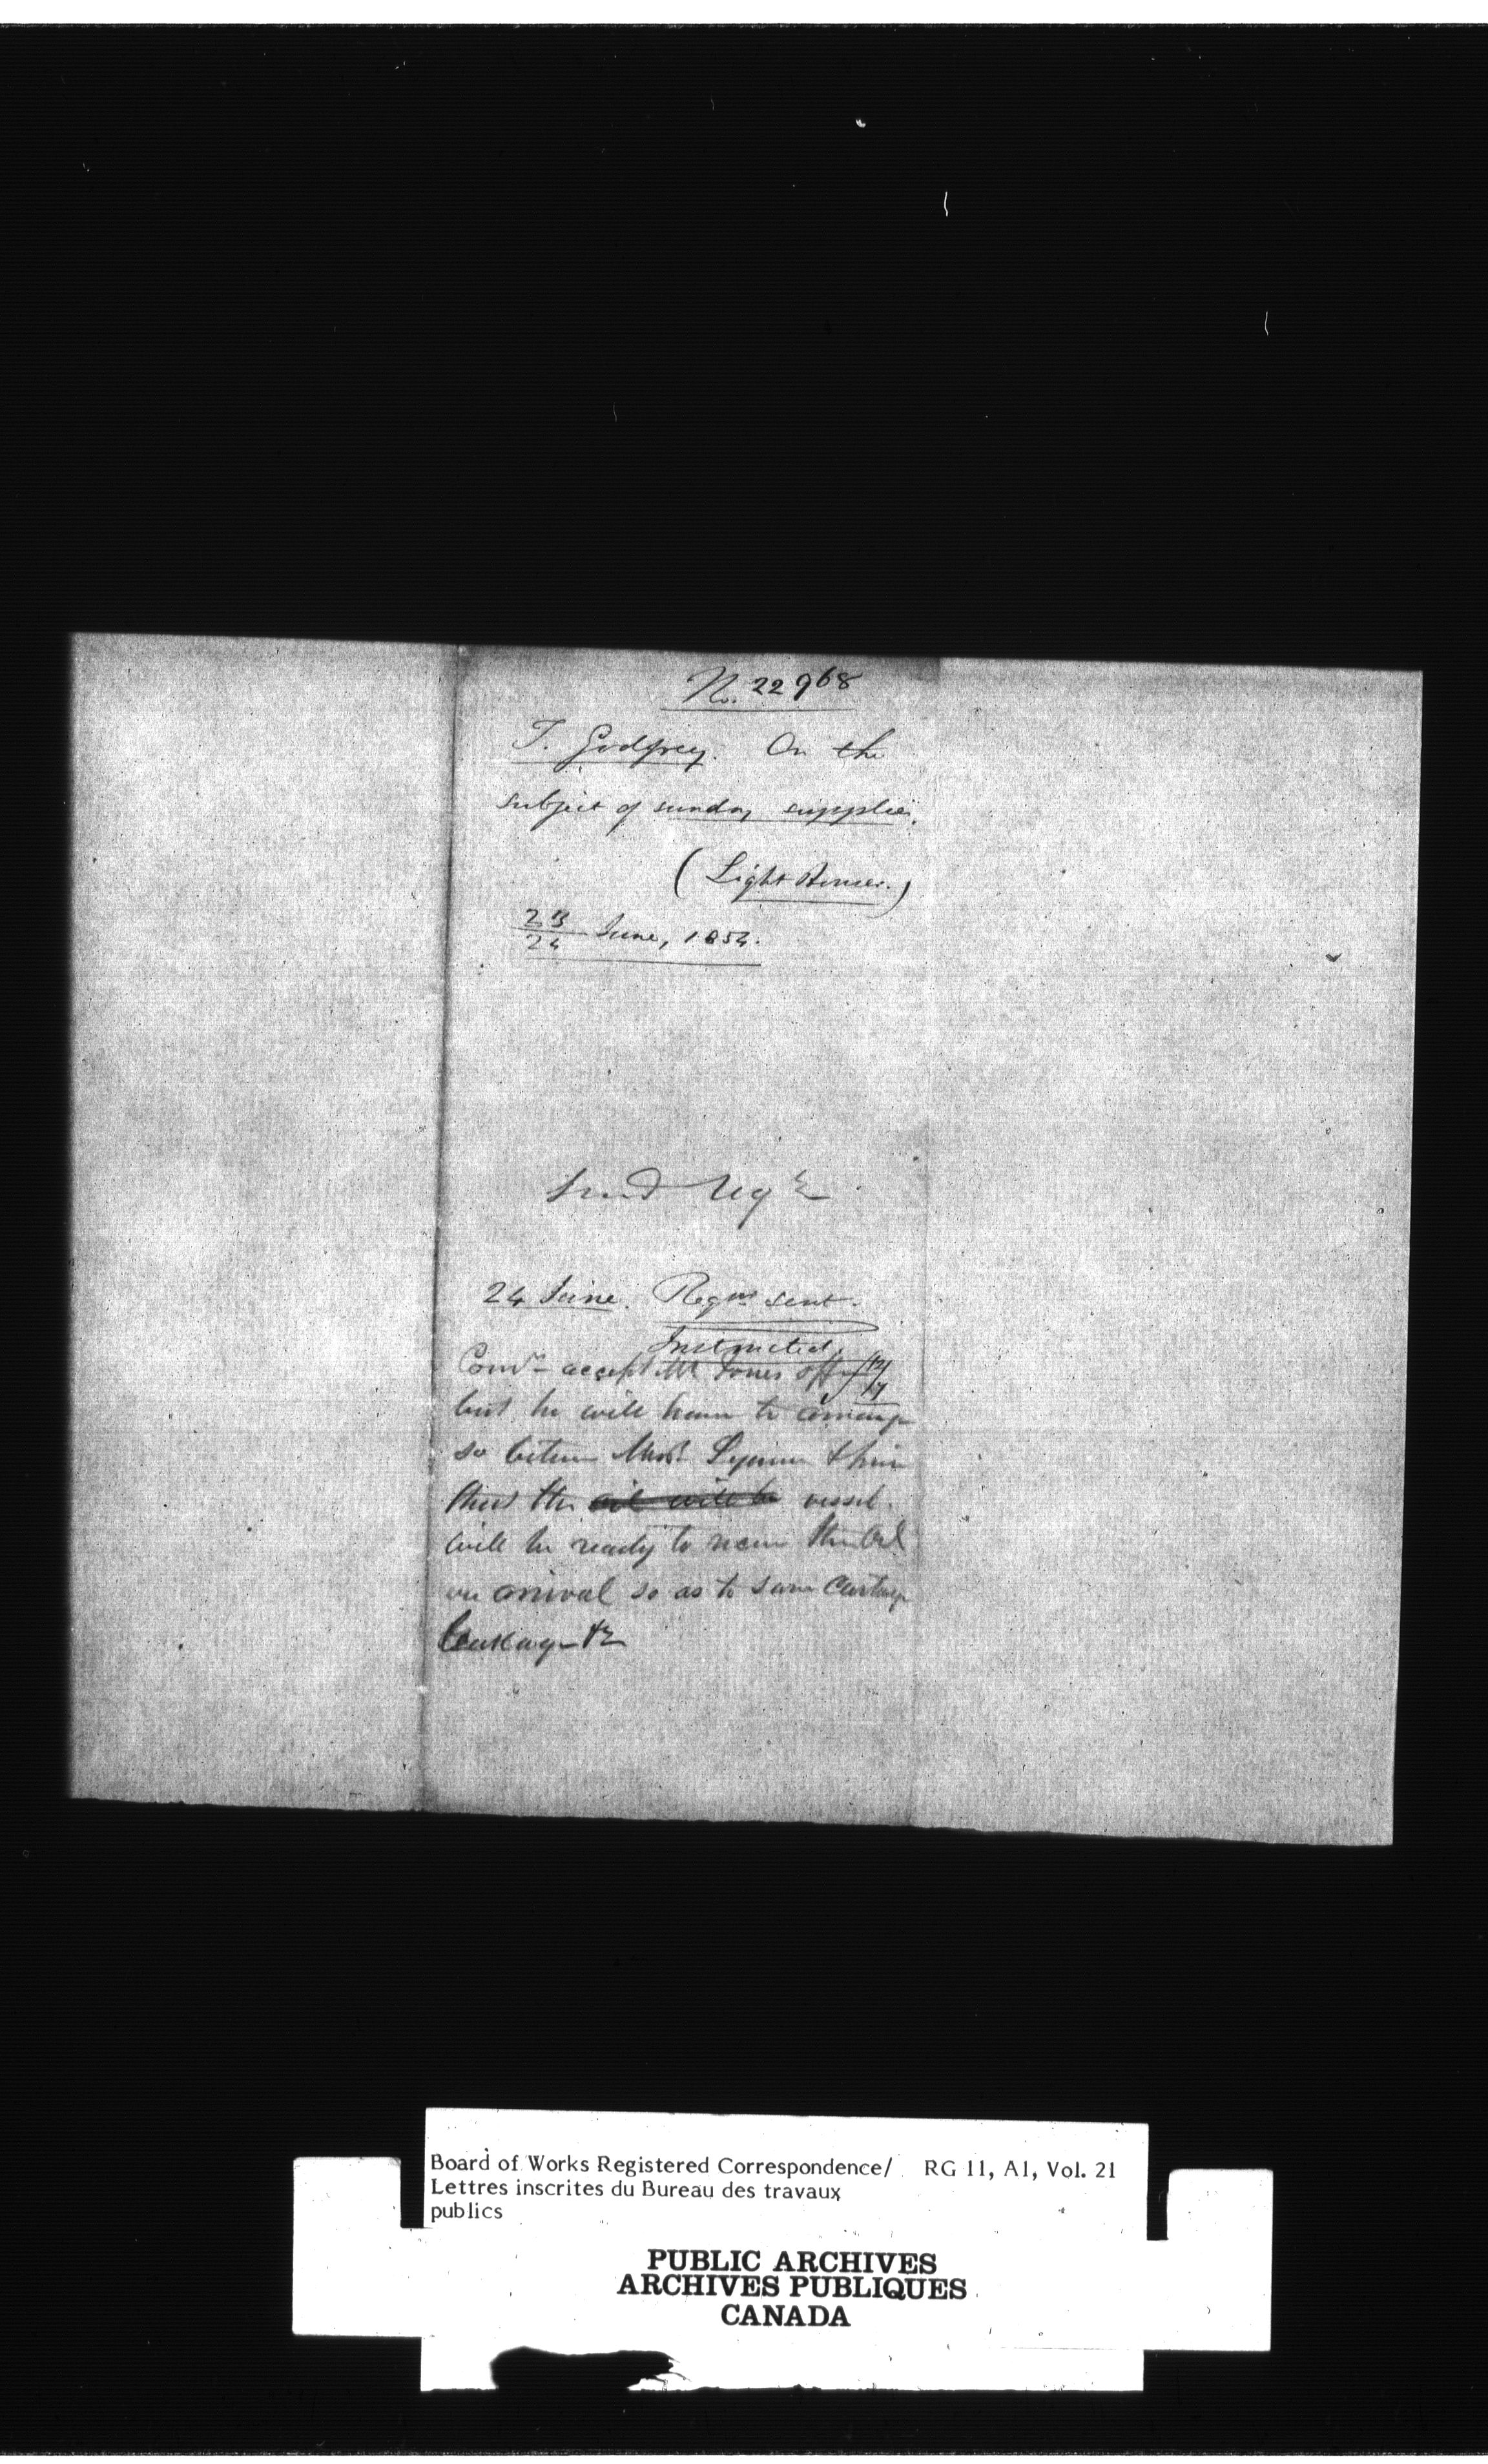 No. 22968
T. Godfrey. On the
subject of sundry supplies.
(Light Houses.)
23/24 June, 1854.
Send
24 June. Reqns sent.
Instructed,
Comrs accept Mr Jones offer
but he will have to arrange
so between Messrs Lymans & him
that the oil will be vessel
will be ready to receive the Oil
on arrival so as to save Cartage
Leakage &c
Board of Works Registered Correspondence/ RG 11, A1, Vol. 21
Lettres inscrites du Bureau des travaux
publics
PUBLIC ARCHIVES
ARCHIVES PUBLIQUES
CANADA